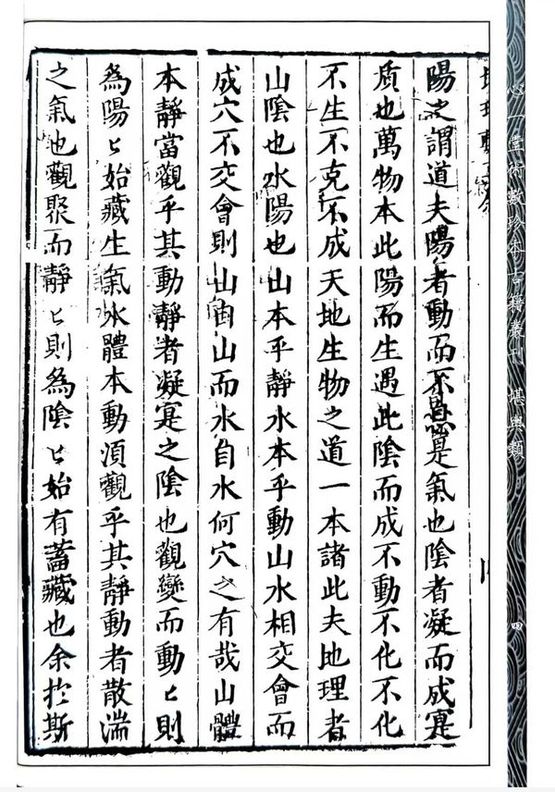 心一堂術數珍本古籍叢刊 堪輿類
四
陽之謂道夫陽者動而不息是氣也陰者凝而成寔
质也萬物本此陽而生遇此陰而成不動不化不化
不生不克不成天地生物之道一本諸此夫地理者
山陰也水陽也山本乎静水本乎動山水相交會而
成穴不交會則山自山而水自水何穴之有哉山體
本靜當觀乎其動靜者凝寔之陰也觀變而動匕則
為陽匕始藏生氣水體本動須觀乎其静動者散湍
之氣也觀聚而靜匕則為陰匕始有蓄藏也余扵斯